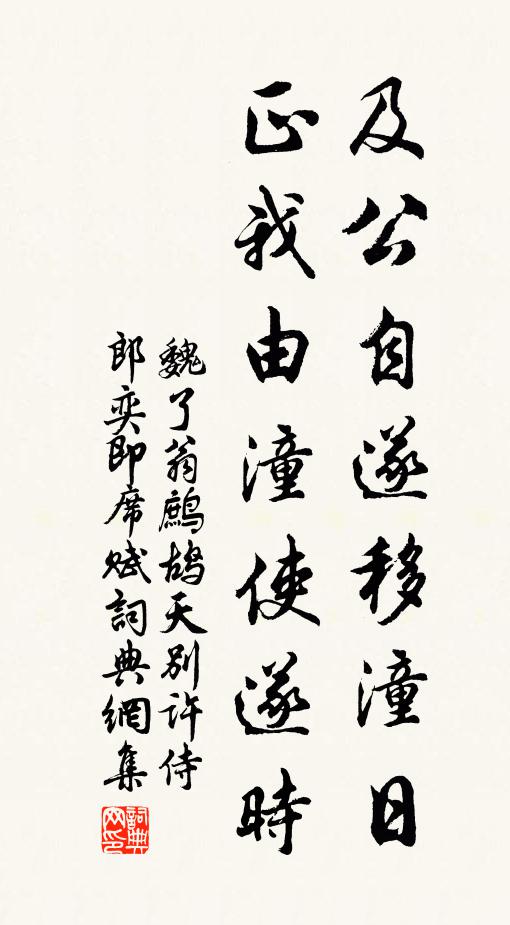 及公自遂移潼日
正我由潼使遂時
魏了翁鷓鴣天別許侍
郎奕即席賦詞典網集
詞典網印